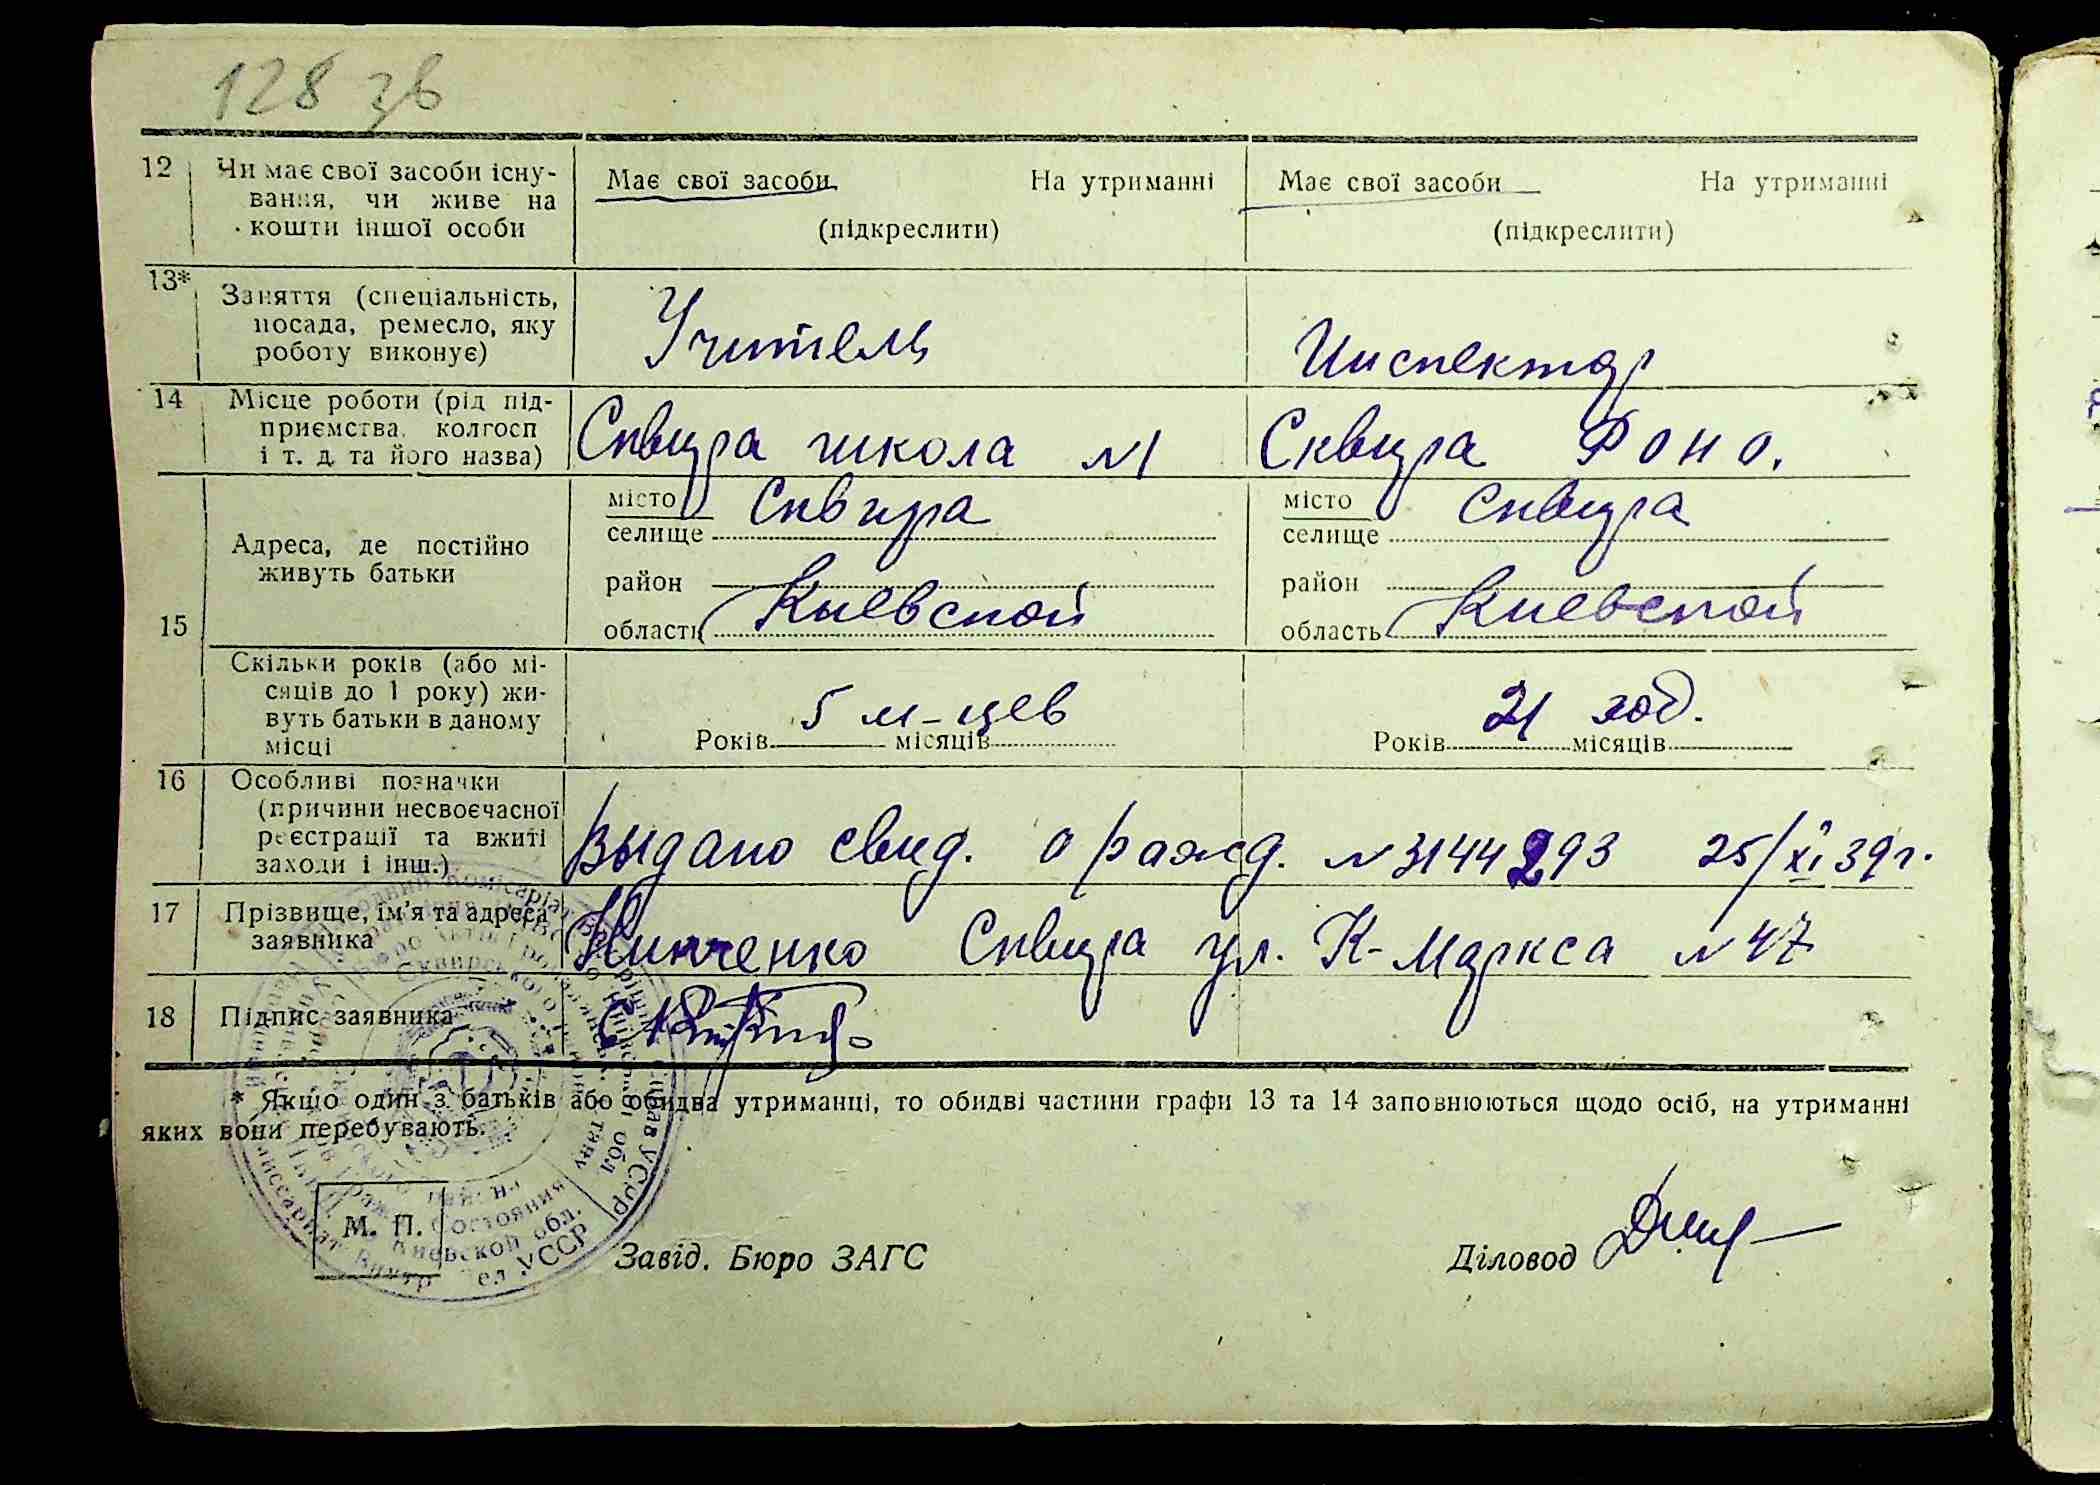 128 зв
12 Чи має свої засоби існу-
вання, чи живе на
кошти іншої особи
Має свої засоби На утриманні
(підкреслити)
Має свої засоби На утриманні
(підкреслити)
13* Заняття (спеціальність,
посада, ремесло, яку
роботу виконує)
Учитель
Инспектор
14 Місце роботи (рід під-
приємства, колгосп
і т. д. та його назва)
Сквира школа №1
Сквира Роно.
15
Адреса, де постійно
живуть батьки
місто Сквира
селище
район
область Киевской
місто Сквира
селище
район
область Киевской
Скільки років (або мі-
сяців до 1 року) жи-
вуть батьки в даному
місці
5 м-цев
Років місяців
21 год.
Років місяців
16 Особливі позначки
(причини несвоєчасної
реєстрації та вжиті
заходи і інш.)
Выдано свид. о рожд. №3144293 25/XI 39г.
17 Прізвище, ім'я та адреса
заявника
Сквира ул. К-Маркса №47
18 Підпис заявника
* Якщо один з батьків або обидва утриманці, то обидві частини графи 13 та 14 заповнюються щодо осіб, на утриманні
яких вони перебувають.
М. П.
Завід. Бюро ЗАГС
Діловод